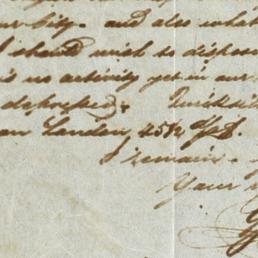 and also what
I should wish to dispose
is no activity yet in our
depressed.
London 45½
I remain
Your